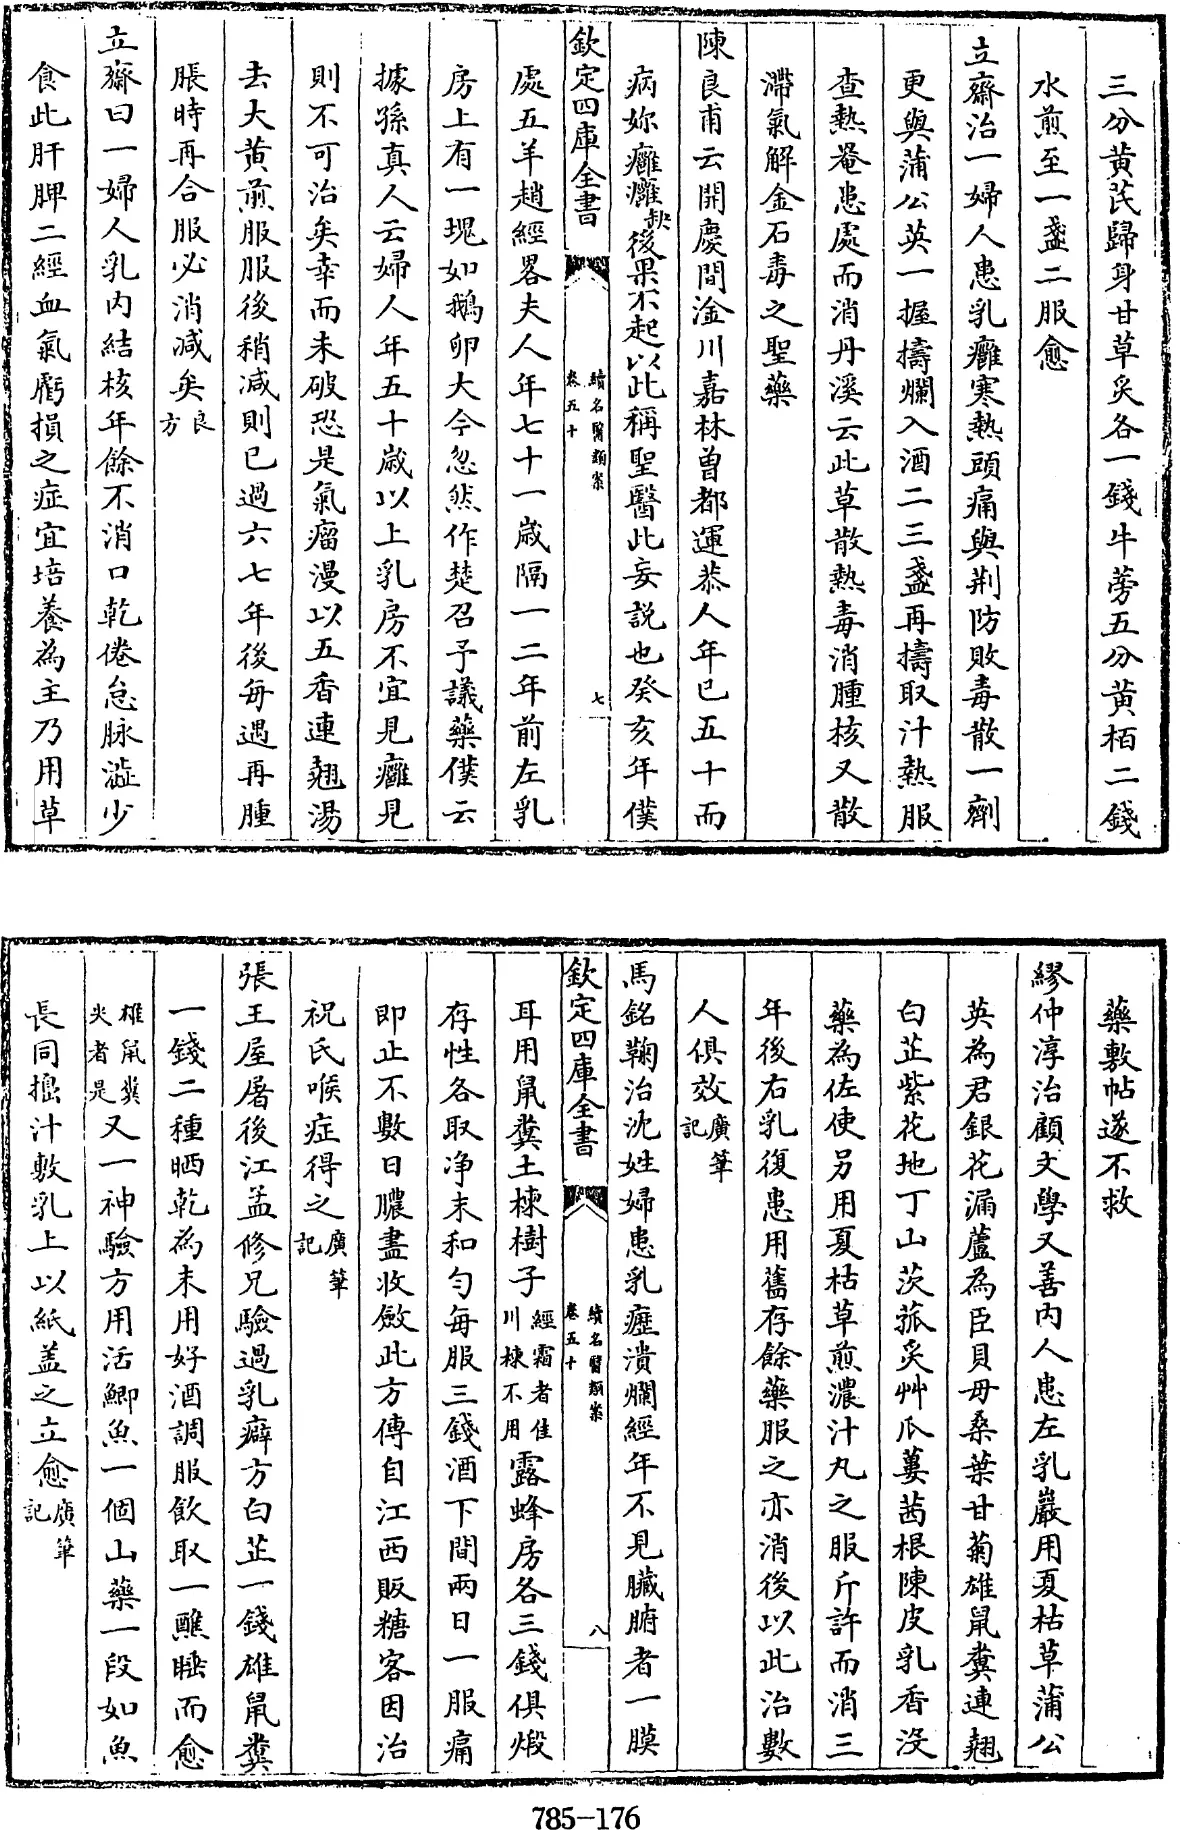 三分黄芪歸身甘草炙各一錢牛蒡五分黄栢二錢
水煎至一盞二服愈
立齋治一婦人患乳癰寒熱頭痛與荆防敗毒散一劑
更與蒲公英一握擣爛入酒二三盞再擣取汁熱服
查熱罨患處而消丹溪云此草散熱毒消腫核又散
滯氣解金石毒之聖藥
陳良甫云開慶間淦川嘉林曾都運恭人年已五十而
病妳癰癰缺後果不起以此稱聖醫此妄説也癸亥年僕
欽定四庫全書
續名醫類案
卷五十
七
處五羊趙經畧夫人年七十一歳隔一二年前左乳
房上有一塊如鵝卵大今忽然作楚召予議藥僕云
據孫真人云婦人年五十歳以上乳房不宜見癰見
則不可治矣幸而未破恐是氣瘤漫以五香連翹湯
去大黄煎服服後稍减則已過六七年後每遇再腫
脹時再合服必消减矣良方
立齋曰一婦人乳内結核年餘不消口乾倦怠脉澁少
食此肝脾二經血氣虧損之症宜培養為主乃用草
藥敷帖遂不救
繆仲淳治顧文學又善内人患左乳巖用夏枯草蒲公
英為君銀花漏蘆為臣貝母桑葉甘菊雄鼠糞連翹
白芷紫花地丁山茨菰炙艸爪蔞茜根陳皮乳香沒
藥為佐使另用夏枯草煎濃汁丸之服斤許而消三
年後右乳復患用舊存餘藥服之亦消後以此治數
人俱效廣筆記
馬銘鞠治沈姓婦患乳癧潰爛經年不見臟腑者一膜
欽定四庫全書
續名醫類案
卷五十
八
耳用鼠糞土楝樹子經霜者佳川楝不用露蜂房各三錢俱煅
存性各取净末和勻每服三錢酒下間兩日一服痛
即止不數日膿盡收斂此方傳自江西販糖客因治
祝氏喉症得之廣筆記
張王屋屠後江孟修兄驗過乳癖方白芷一錢雄鼠糞
一錢二種晒乾為末用好酒調服飲取一醮睡而愈
雄鼠糞尖者是又一神驗方用活鯽魚一個山藥一段如魚
長同搗汁敷乳上以紙盖之立愈廣筆記
785-176